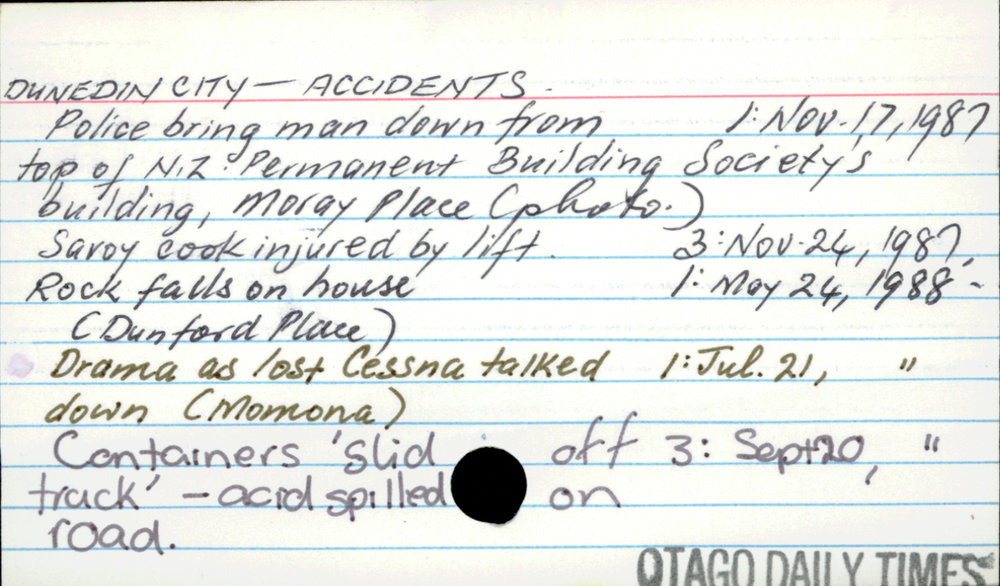 DUNEDIN CITY — ACCIDENTS.
Police bring man down from 1: Nov. 17, 1987
top of N.Z. Permanent Building Society's
building, Moray Place (photo.)
Savoy cook injured by lift. 3: Nov. 24, 1987.
Rock falls on house 1: May 24, 1988 -
(Dunford Place)
Drama as lost Cessna talked 1: Jul. 21, "
down (Momona)
Containers 'slid off 3: Sept 20, "
track' – acid spilled on
road.
OTAGO DAILY TIMES